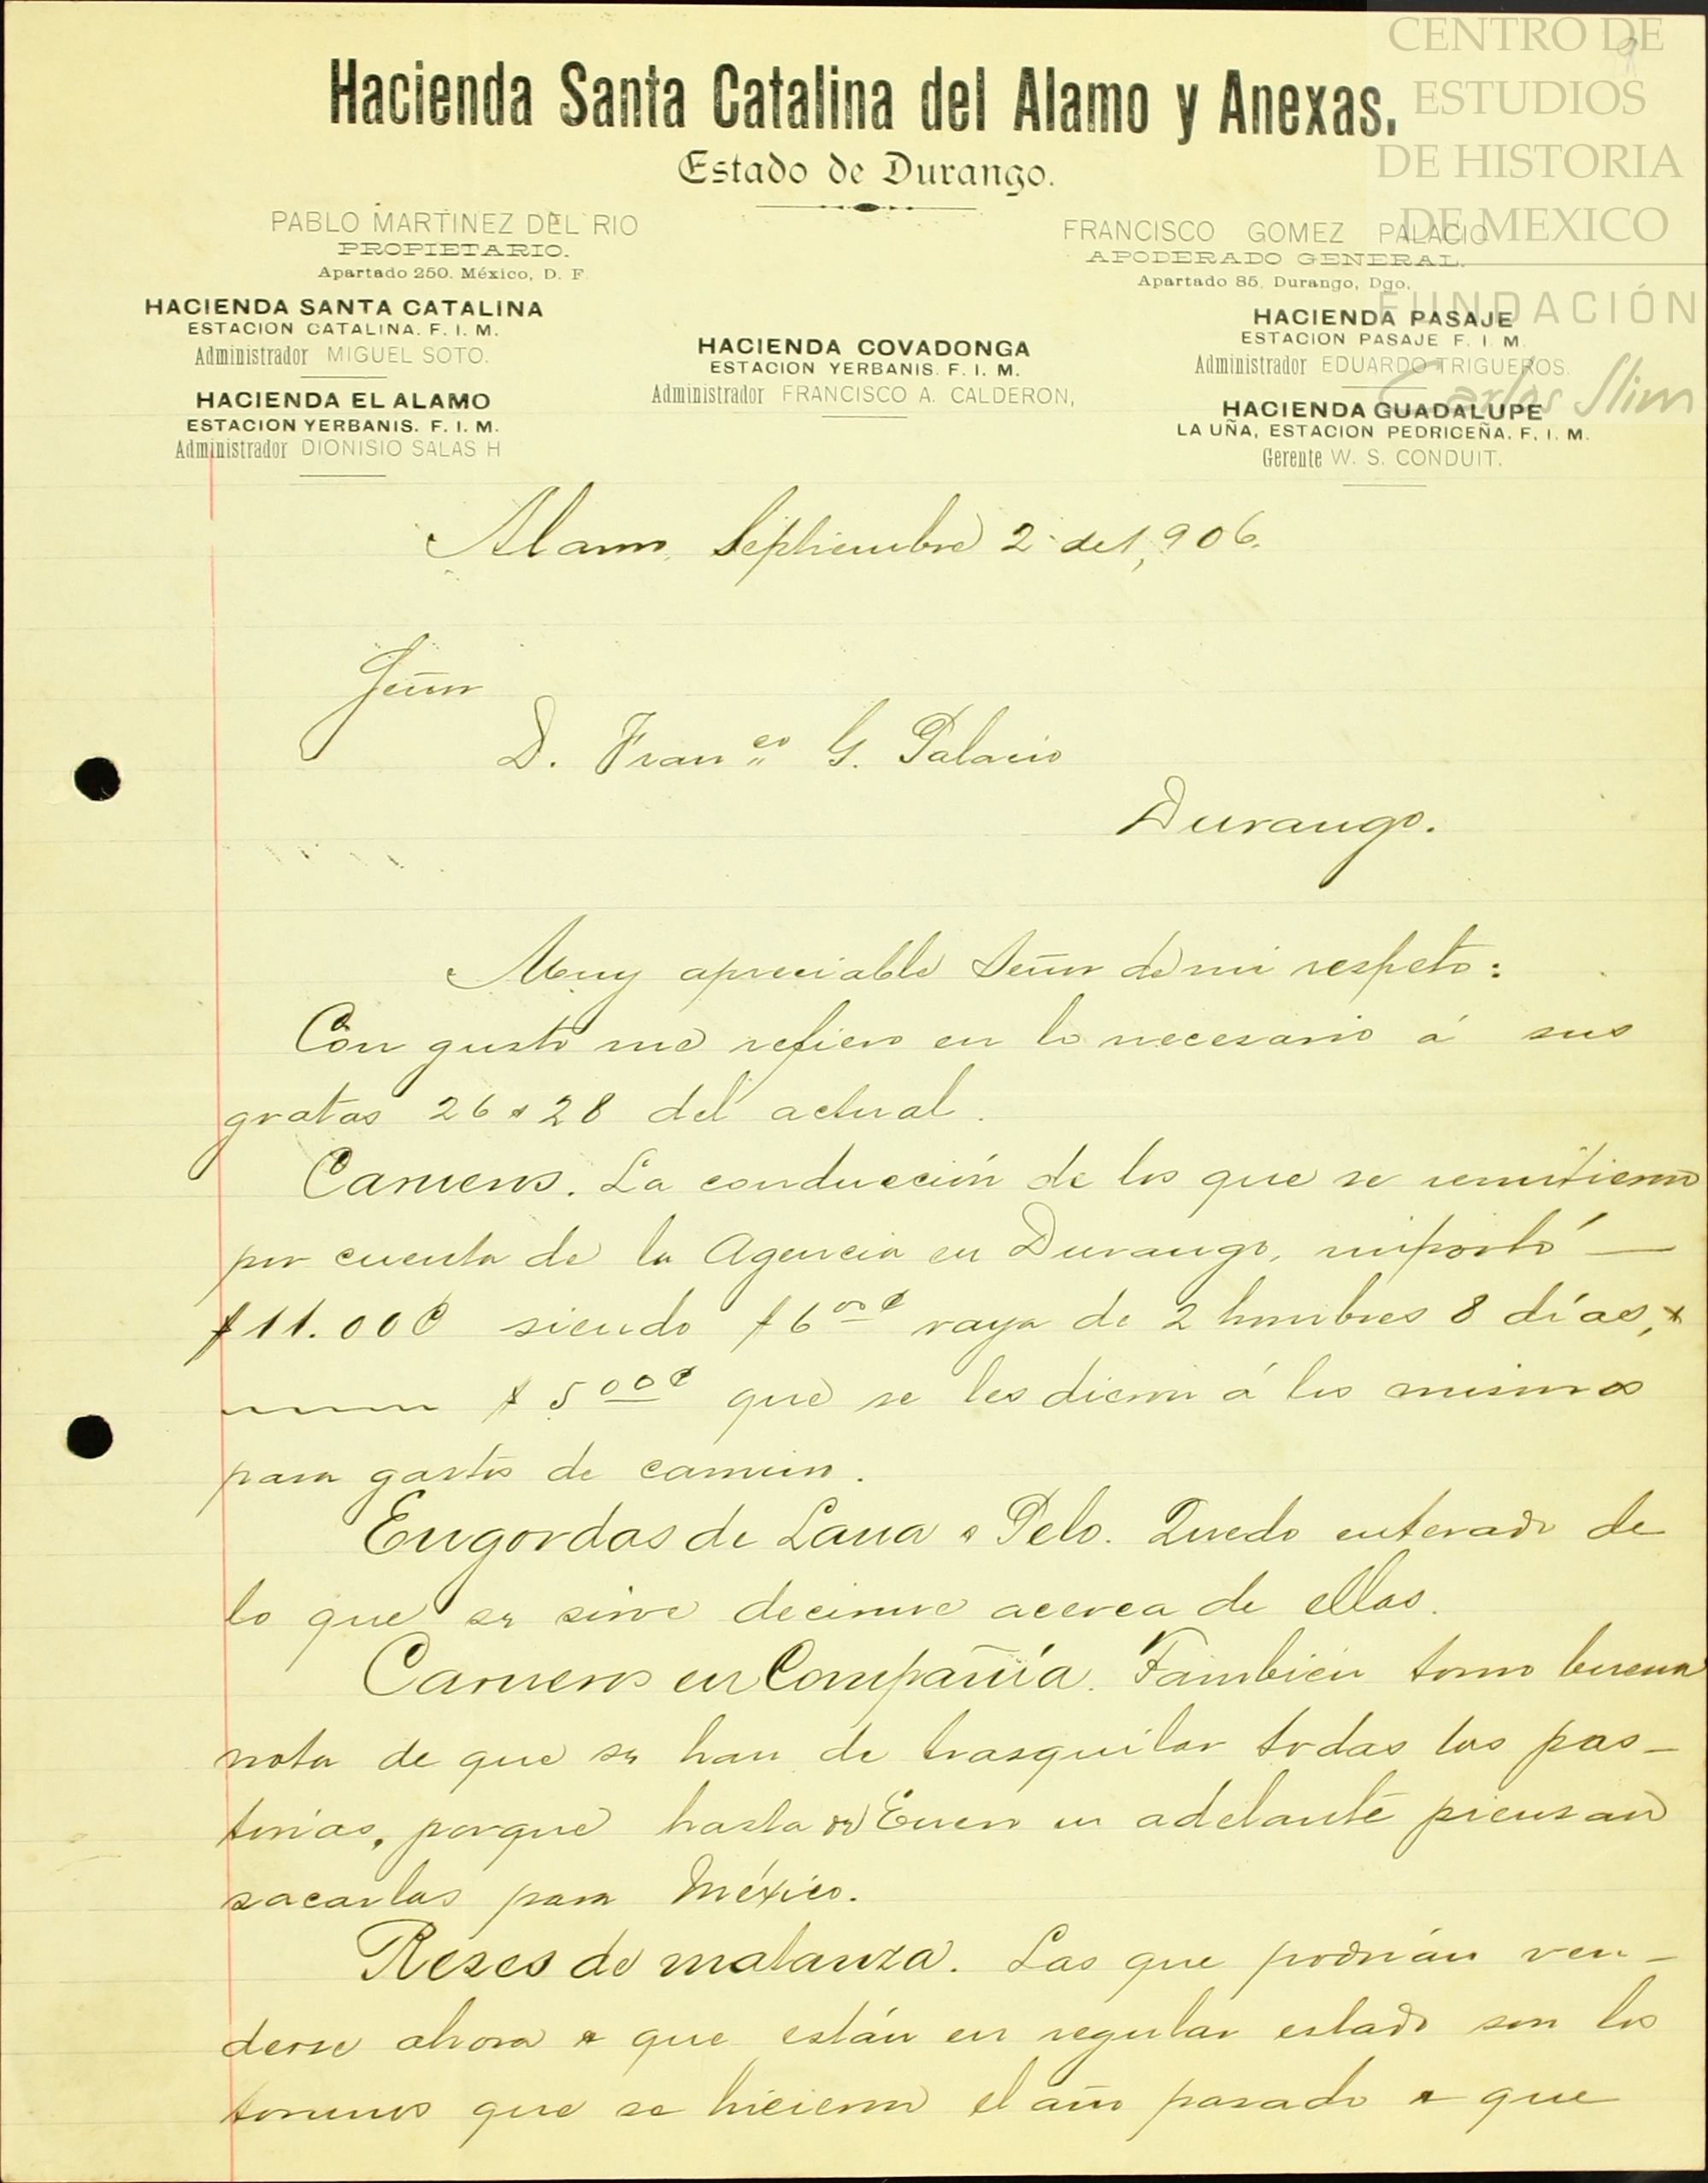 CENTRO DE
ESTUDIOS
DE HISTORIA
DE MEXICO
FUNDACIÓN
Carlos Slim
9
Hacienda Santa Catalina del Alamo y Anexas.
Estado de Durango.
PABLO MARTINEZ DEL RIO
PROPIETARIO.
Apartado 250. México, D. F
HACIENDA SANTA CATALINA
ESTACION CATALINA. F. I. M.
Administrador MIGUEL SOTO.
HACIENDA EL ALAMO
ESTACION YERBANIS. F. I. M.
Administrador DIONISIO SALAS H
HACIENDA COVADONGA
ESTACION YERBANIS. F. I. M.
Administrador FRANCISCO A. CALDERON,
FRANCISCO GOMEZ PALACIO
APODERADO GENERAL.
Apartado 85, Durango, Dgo.
HACIENDA PASAJE
ESTACION PASAJE F. I. M.
Administrador EDUARDO TRIGUEROS.
HACIENDA GUADALUPE
LA UÑA, ESTACION PEDRICEÑA. F. I. M.
Gerente W. S. CONDUIT.
Alamo, Septiembre 2 de 1,906.
Señor
D. Franco G. Palacio
Durango.
Muy apreciable Señor de mi respeto:
Con gusto me refiero en lo necesario á sus
gratas 26 y 28 del actual.
Carneros. La conducción de los que se remitieron
por cuenta de la Agencia en Durango, importó —
$11.00 ¢ siendo $6 00 ¢ raya de 2 hombres 8 días, y
$ 5 00 ¢ que se les dieron á los mismos
para gastos de camino.
Engordas de Lana y Pelo. Quedo enterado de
lo que se sirve decirme acerca de ellas.
Carneros en Compañía. Tambien tomo buena
nota de que se han de trasquilar todas las pas-
torías, porque hasta de Enero en adelante piensan
sacarlas para México.
Reses de matanza. Las que podrían ven-
derse ahora y que están en regular estado son los
torunos que se hicieron el año pasado y que